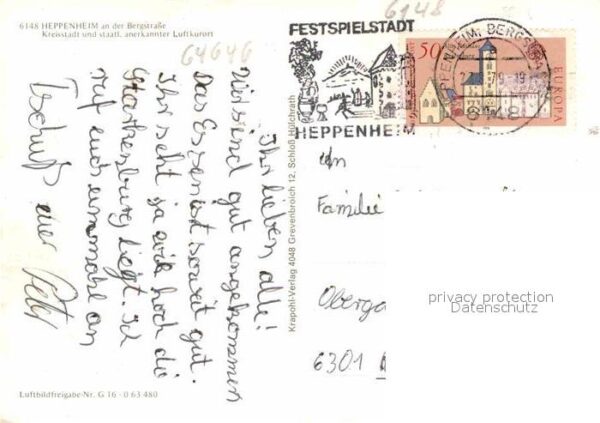 6148 HEPPENHEIM an der Bergstraße
Kreisstadt und staatl. anerkannter Luftkurort
64646
6148
FESTSPIELSTADT
HEPPENHEIM
50
EUROPA
HEPPENHEIM, BERGSTR
6148
Ihr lieben alle!
Wir sind gut angekommen
Das Essen ist soweit gut.
Ihr seht ja wie hoch die
Starkenburg liegt. Ich
ruf euch einmahl an
Tschüß euer Peter
Krapohl-Verlag 4048 Grevenbroich 12, Schloß Hülchrath
An
Familie
Oberga
6301
privacy protection
Datenschutz
Luftbildfreigabe-Nr. G 16 - 0 63 480